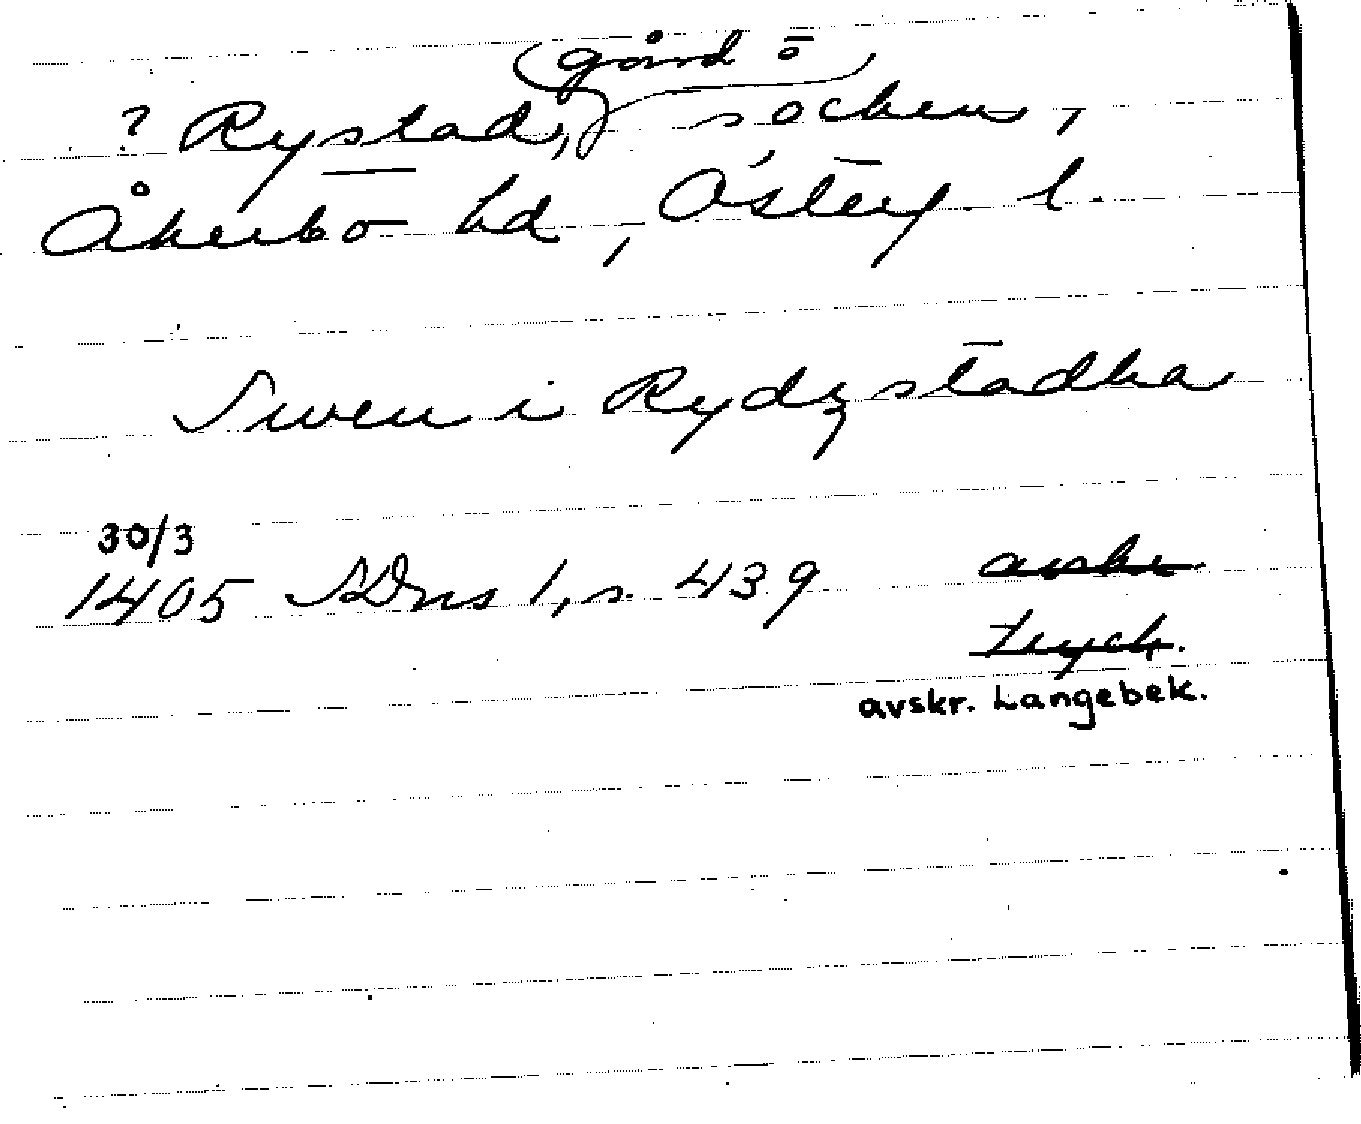 gård o
? Rystad, socken,
Åkerbo hd, Österg. l.
Swen i Rydzstadha
30/3
1405 SDns 1, s. 439 avskr
tryck.
avskr. Langebek.